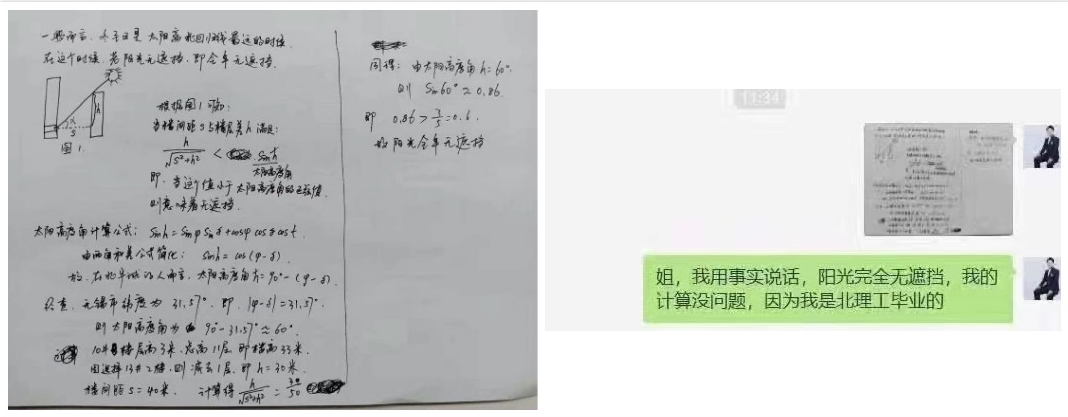 一般而言，冬至日是太阳离北回归线最远的时候。
在这个时候，若阳光无遮挡，即全年无遮挡。
h
α
S
图1.
根据图1可知：
当楼间距S与楼层差h满足：
h/√(S²+h²) < sin h
太阳高度角
即，当这个值小于太阳高度角的正弦值，
则意味着无遮挡。
太阳高度角计算公式：sinh = sinφ sinδ + cosφ cosδ cost.
由两角和差公式简化：sinh = cos(φ-δ).
故，在北半球的人而言，太阳高度角h = 90° - (φ-δ).
经查，无锡市纬度为 31.57°. 即，|φ-δ| = 31.57°.
则太阳高度角为 90° - 31.57° ≈ 60°.
10#楼层高3米，总高11层，即楼高33米.
因选择13#2楼，则减去1层，即h=30米.
楼间距S=40米. 计算得 h/√(S²+h²) = 30/50
同理：由太阳高度角h=60°.
则 Sin60° ≈ 0.86.
即 0.86 > 3/5 = 0.6.
故阳光全年无遮挡
11:34
姐，我用事实说话，阳光完全无遮挡，我的
计算没问题，因为我是北理工毕业的